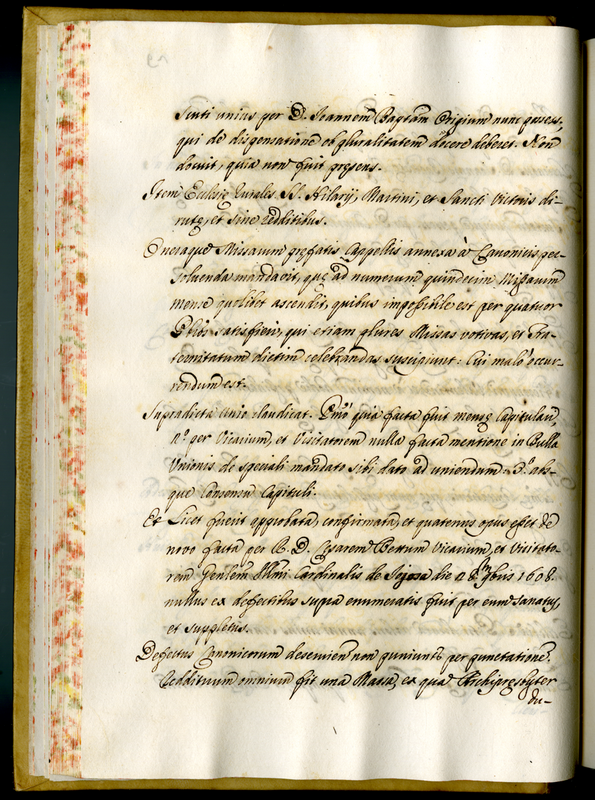 Tuti unius per D. Joannem Baptam Origium nunc possess,
qui de dispensatione ob pluralitatem docere deberet. Non
docuit, quia non fuit presens.
Item Ecclesię Rurales SS. Hilarij, Martini, et Sancti Victoris di-
rutę, et sine redditibus.
Oneraque Missarum pręfatis Cappellis annexa à Canonicis per-
soluenda mandavit, quę ad numerum quindecim Missarum
mense quolibet ascendit, quibus impossibile est per quatuor
Pbros satisfieri, qui etiam plures Missas votivas, et Fra-
ternitatum dictim celebrandas suscipiunt: Cui malo occur-
rendum est.
Supradicta unio claudicat. Pmo quia facta fuit mensę Capitulari,
2.o per Vicarium, et Visitatorem nulla facta mentione in Bulla
Unionis de speciali mandato sibi dato ad uniendum. 3.o abs-
que Consensu Capituli.
Et Licet fuerit approbata, confirmata, et quatenus opus esset de
novo facta per R. D. Cesarem Vicarium, et Visitato-
rem Genlem Illmi Cardinalis de die 28 1608.
nullus ex defectibus supra enumeratis fuit per eum sanatus,
et suppletus.
Defectus Canonicorum deservien non puniuntr per punctatione.
Reddituum omnium fit una Massa, ex qua Archipresbyter
du-